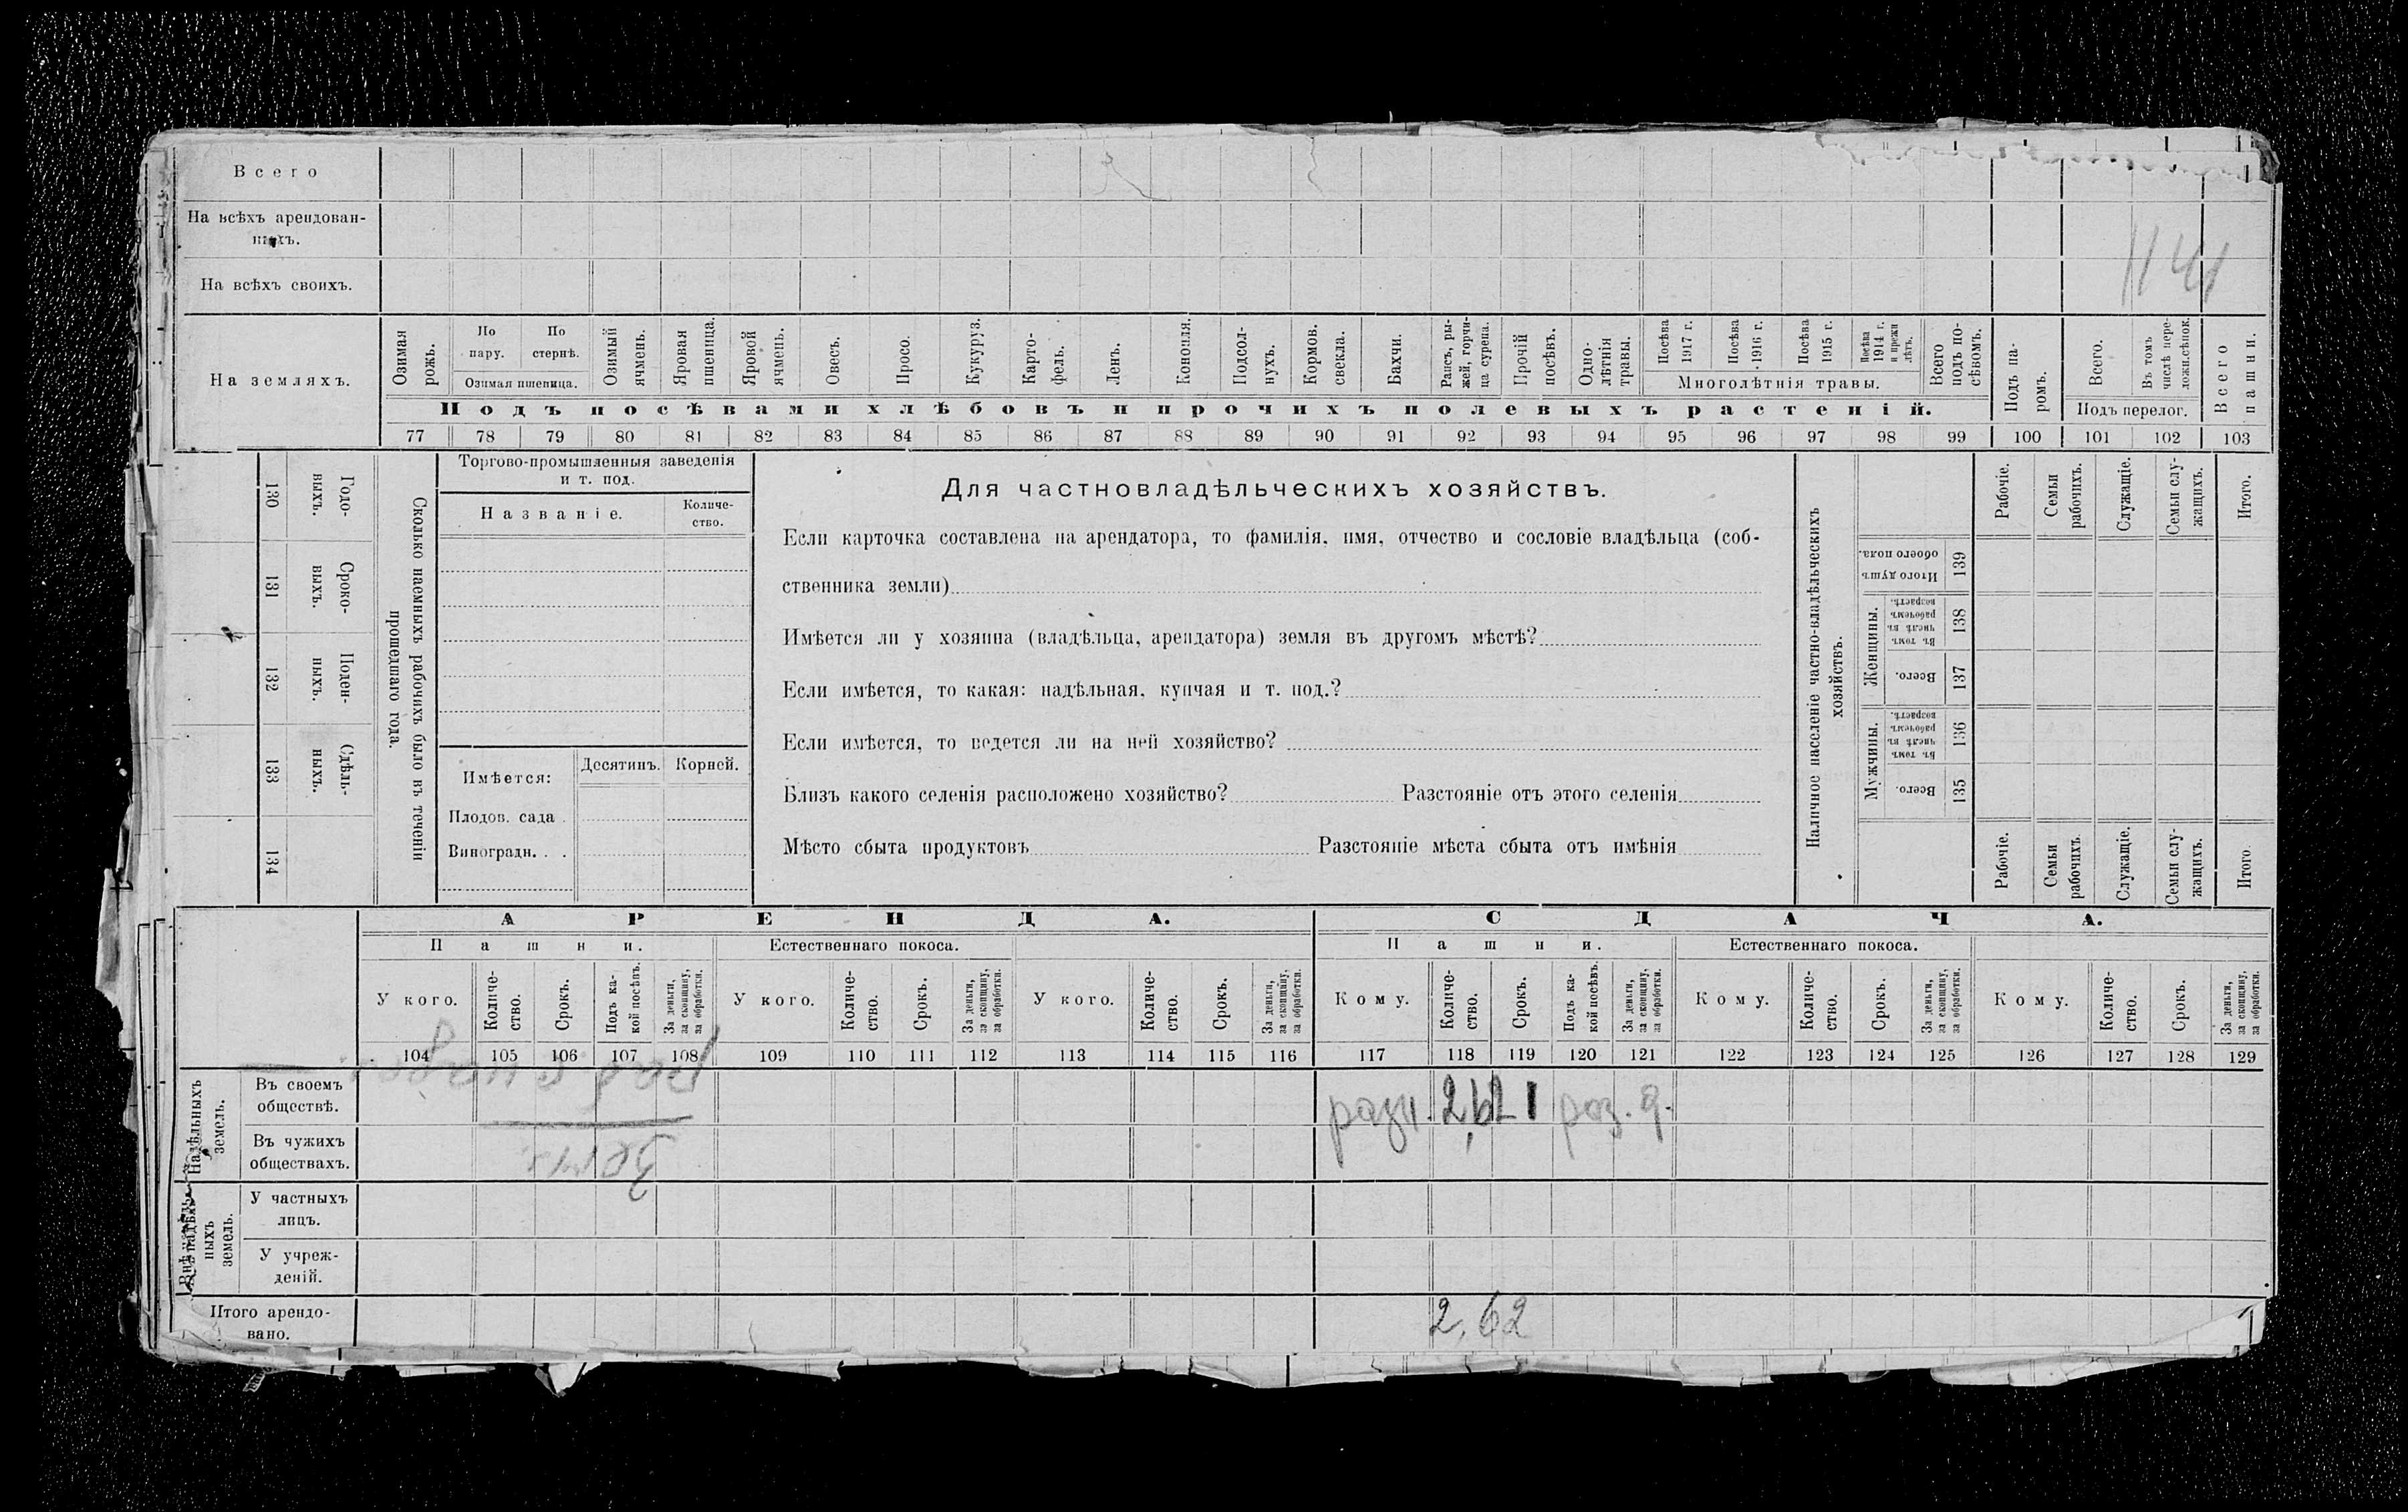 Всего
На всѣхъ арендован-
ныхъ.
На всѣхъ своихъ.
1141
На земляхъ.
Озимая рожь.
По пару.
По стернѣ.
Озимая пшеница.
Озимый ячмень.
Яровая пшеница.
Яровой ячмень.
Овесъ.
Просо.
Кукуруз.
Карто-
фель.
Ленъ.
Конопля.
Подсол-
нухъ.
Кормов. свекла.
Бахчи.
Рапсъ, ры-
жей, горчи-
ца сурепа.
Прочій посѣвъ.
Одно-
лѣтнія травы.
Посѣва 1917 г.
Посѣва 1916 г.
Посѣва 1915 г.
Посѣва 1914 г. и прежн лѣтъ.
Многолѣтнія травы.
Всего подъ по-
сѣвомъ.
Подъ па-
ромъ.
Всего.
Въ томъ числѣ пере-
ложн.сѣнок.
Подъ перелог.
Всего пашни.
Подъ посѣвами хлѣбовъ и прочихъ полевыхъ растеній.
77 78 79 80 81 82 83 84 85 86 87 88 89 90 91 92 93 94 95 96 97 98 99 100 101 102 103
130 Годо-
выхъ.
131 Сроко-
выхъ.
132 Поден-
ныхъ.
133 Сдѣль-
ныхъ.
134
Сколько наемныхъ рабочихъ было въ теченіи
прошедшаго года.
Торгово-промышленныя заведенія
и т. под.
Названіе.
Количе-
ство.
Имѣется:
Десятинъ.
Корней.
Плодов. сада .
Виноградн. . .
Для частновладѣльческихъ хозяйствъ.
Если карточка составлена на арендатора, то фамилія, имя, отчество и сословіе владѣльца (соб-
ственника земли)
Имѣется ли у хозяина (владѣльца, арендатора) земля въ другомъ мѣстѣ?
Если имѣется, то какая: надѣльная, купчая и т. под.?
Если имѣется, то ведется ли на ней хозяйство?
Близъ какого селенія расположено хозяйство? Разстояніе отъ этого селенія
Мѣсто сбыта продуктовъ Разстояніе мѣста сбыта отъ имѣнія
Наличное населеніе частно-владѣльческихъ
хозяйствъ.
Рабочіе.
Семьи рабочихъ.
Служащіе.
Семьи слу-
жащихъ.
Итого.
Итого душъ обоего пола. 139
Женщины.
Въ томъ числѣ въ рабочемъ возрастѣ. 138
Всего. 137
Мужчины.
Въ томъ числѣ въ рабочемъ возрастѣ. 136
Всего. 135
Рабочіе.
Семьи рабочихъ.
Служащіе.
Семьи слу-
жащихъ.
Итого.
АРЕНДА.
СДАЧА.
Пашни.
Естественнаго покоса.
Пашни.
Естественнаго покоса.
У кого.
Количе-
ство.
Срокъ.
Подъ ка-
кой посѣвъ.
За деньги, за скопщину, за обработки.
У кого.
Количе-
ство.
Срокъ.
За деньги, за скопщину, за обработки.
У кого.
Количе-
ство.
Срокъ.
За деньги, за скопщину, за обработки.
Кому.
Количе-
ство.
Срокъ.
Подъ ка-
кой посѣвъ.
За деньги, за скопщину, за обработки.
Кому.
Количе-
ство.
Срокъ.
За деньги, за скопщину, за обработки.
Кому.
Количе-
ство.
Срокъ.
За деньги, за скопщину, за обработки.
104 105 106 107 108 109 110 111 112 113 114 115 116 117 118 119 120 121 122 123 124 125 126 127 128 129
Надѣльныхъ земель.
Въ своемъ
обществѣ.
разн. 2,62 1 раз. д.
Въ чужихъ
обществахъ.
Внѣнадѣль-
ныхъ земель.
У частныхъ
лицъ.
У учреж-
деній.
Итого арендо-
вано.
2,62